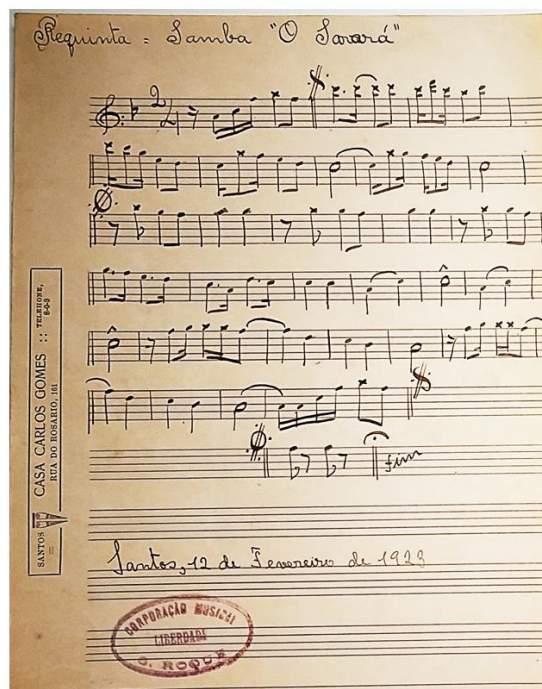 Requinta = Samba "O Sarará"
2/4
fim
SANTOS = CASA CARLOS GOMES :: TELEHONE, 8-0-9
RUA DO ROSARIO, 161
Santos, 12 de Fevereiro de 1923
CORPORAÇÃO MUSICAL
LIBERDADE
S. ROQUE